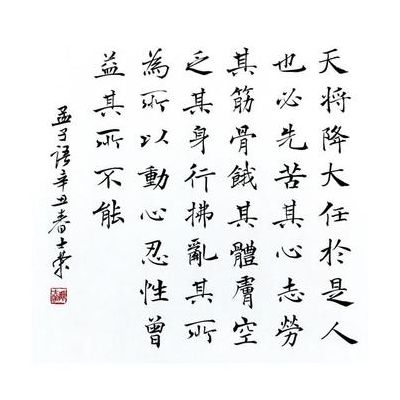 天将降大任於是人
也必先苦其心志勞
其筋骨餓其體膚空
乏其身行拂亂其所
為所以動心忍性曾
益其所不能
孟子語辛丑春士榮